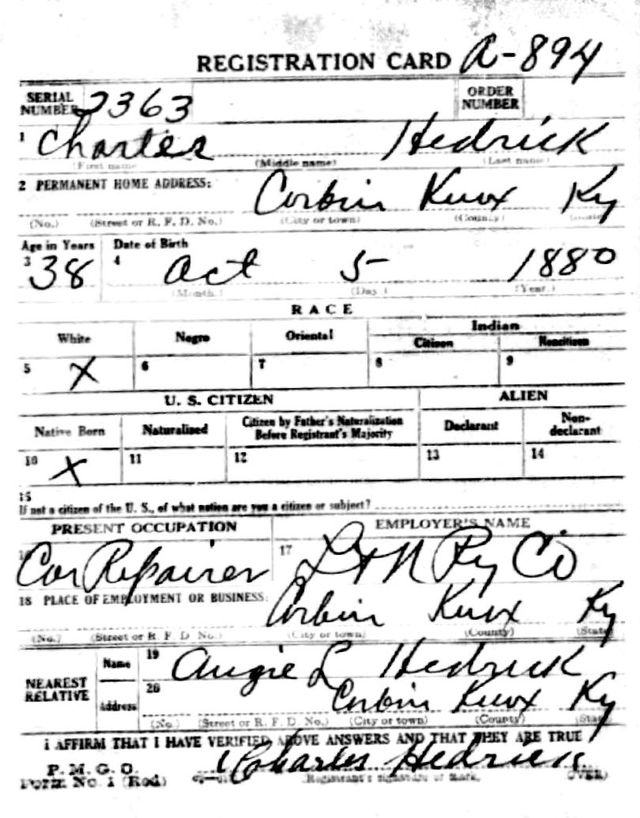 REGISTRATION CARD A-894
SERIAL NUMBER 2363 ORDER NUMBER
1 Charles Hedrick
(First name) (Middle name) (Last name)
2 PERMANENT HOME ADDRESS: Corbin Knox Ky
(No.) (Street or R. F. D. No.) (City or town) (County) (State)
Age in Years Date of Birth
3 38 4 Oct 5 1880
(Month.) (Day.) (Year.)
RACE
White Negro Oriental Indian
Citizen Noncitizen
5 X 6 7 8 9
U. S. CITIZEN ALIEN
Native Born Naturalized Citizen by Father's Naturalization Before Registrant's Majority Declarant Non-declarant
10 X 11 12 13 14
15
If not a citizen of the U. S., of what nation are you a citizen or subject?
PRESENT OCCUPATION EMPLOYER'S NAME
16 Car Repairer 17 L & N Ry Co
18 PLACE OF EMPLOYMENT OR BUSINESS: Corbin Knox Ky
(No.) (Street or R. F. D. No.) (City or town) (County) (State)
NEAREST RELATIVE Name 19 Angie L Hedrick
Address 20 Corbin Knox Ky
(No.) (Street or R. F. D. No.) (City or town) (County) (State)
I AFFIRM THAT I HAVE VERIFIED ABOVE ANSWERS AND THAT THEY ARE TRUE
P. M. G. O.
Form No. 1 (Red) Charles Hedrick
(Registrant's signature or mark.) (OVER)